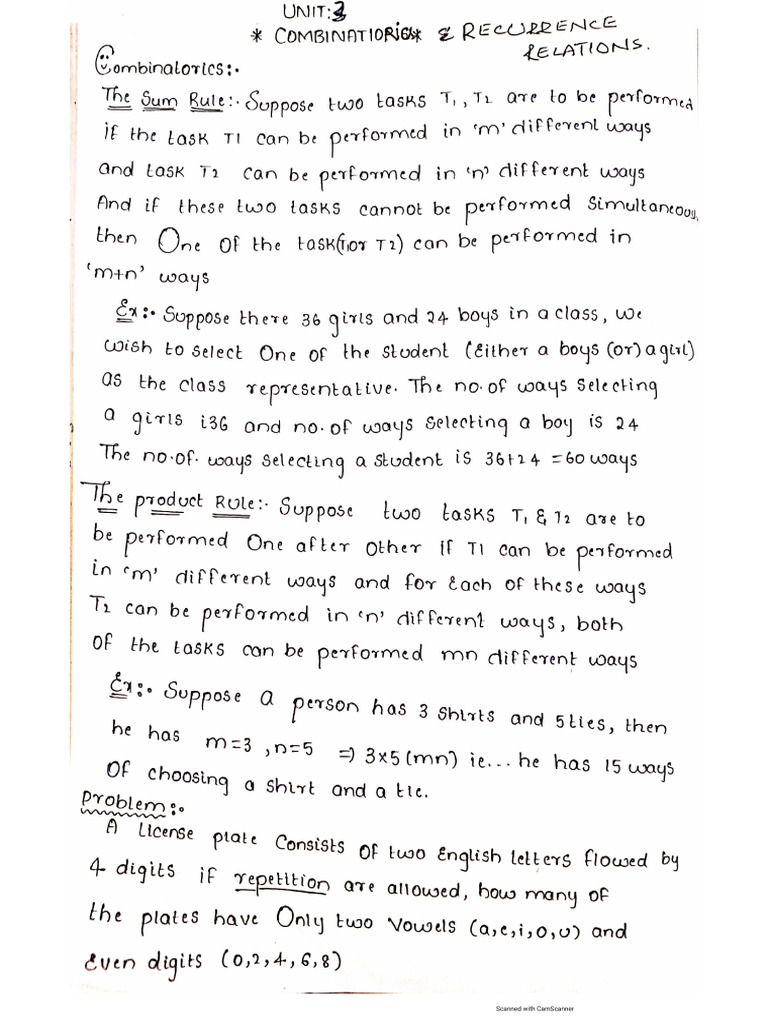 UNIT: 3
* COMBINATIORIGS* & RECURRENCE
RELATIONS.
Combinatorics:-
The Sum Rule:- Suppose two tasks T1, T2 are to be performed
if the task T1 can be performed in 'm' different ways
and task T2 can be performed in 'n' different ways
And if these two tasks cannot be performed Simultaneous,
then One of the task(T1 or T2) can be performed in
'm+n' ways
Ex:- Suppose there 36 girls and 24 boys in a class, we
wish to select One of the student (Either a boys (or) a girl)
as the class representative. The no. of ways Selecting
a girls i36 and no. of ways Selecting a boy is 24
The no.of. ways selecting a student is 36+24 = 60 ways
The product Rule:- Suppose two tasks T1 & T2 are to
be performed One after Other if T1 can be performed
in 'm' different ways and for Each of these ways
T2 can be performed in 'n' different ways, both
of the tasks can be performed mn different ways
Ex:- Suppose a person has 3 shirts and 5 ties, then
he has m=3 , n=5 => 3x5 (mn) ie... he has 15 ways
Of choosing a shirt and a tie.
Problem:-
A License plate Consists of two English letters flowed by
4 digits if repetition are allowed, how many of
the plates have Only two Vowels (a,e,i,o,u) and
Even digits (0,2,4,6,8)
Scanned with CamScanner